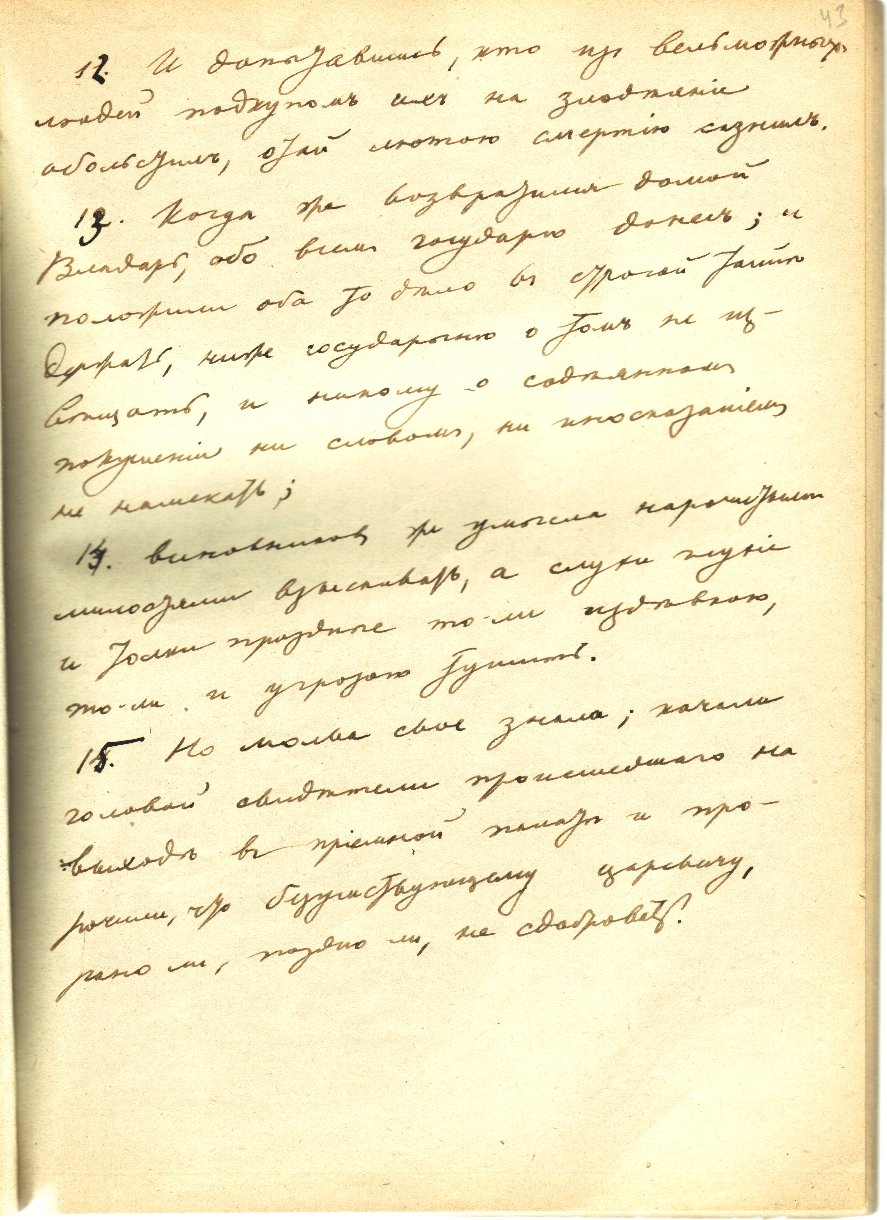 43
12. И допытавшись, кто из вельможныхъ
людей подкупомъ ихъ на злодѣяніе
обольстилъ, лютою смертію казнилъ.
13. Когда же возвратился домой
Владарь, обо всемъ государю донесъ; и
положили оба то дѣло въ строгой тайнѣ
держать, ниже государыню о томъ не из-
вѣщать, и никому о содѣянномъ
покушеніи ни словомъ, ни иносказаніемъ
не намекать;
14. виновниковъ же умысла нарочитыми
милостями взыскивать, а слухи всякіе
и толки праздные то-ли издѣвкою,
то-ли и угрозою тушить.
15. Но молва свое знала; качали
головой свидѣтели происшедшаго на
выходѣ въ пріемной палатѣ и про-
рочили, что безумствующему царевичу,
рано ли, поздно ли, не сдобровать.